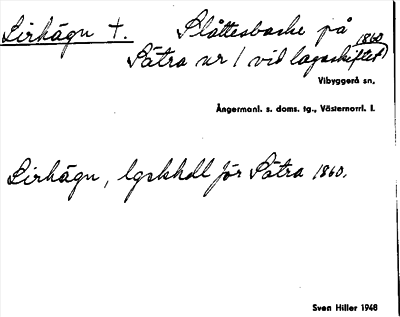 Lirhägn †. Slåttesbacke på
Sätra nr 1 vid lagaskiftet 1860
Vibyggerå sn.
Ångermanl. s. doms. tg., Västernorrl. l.
Lirhägn, lgskhdl för Sätra 1860.
Sven Hiller 1948